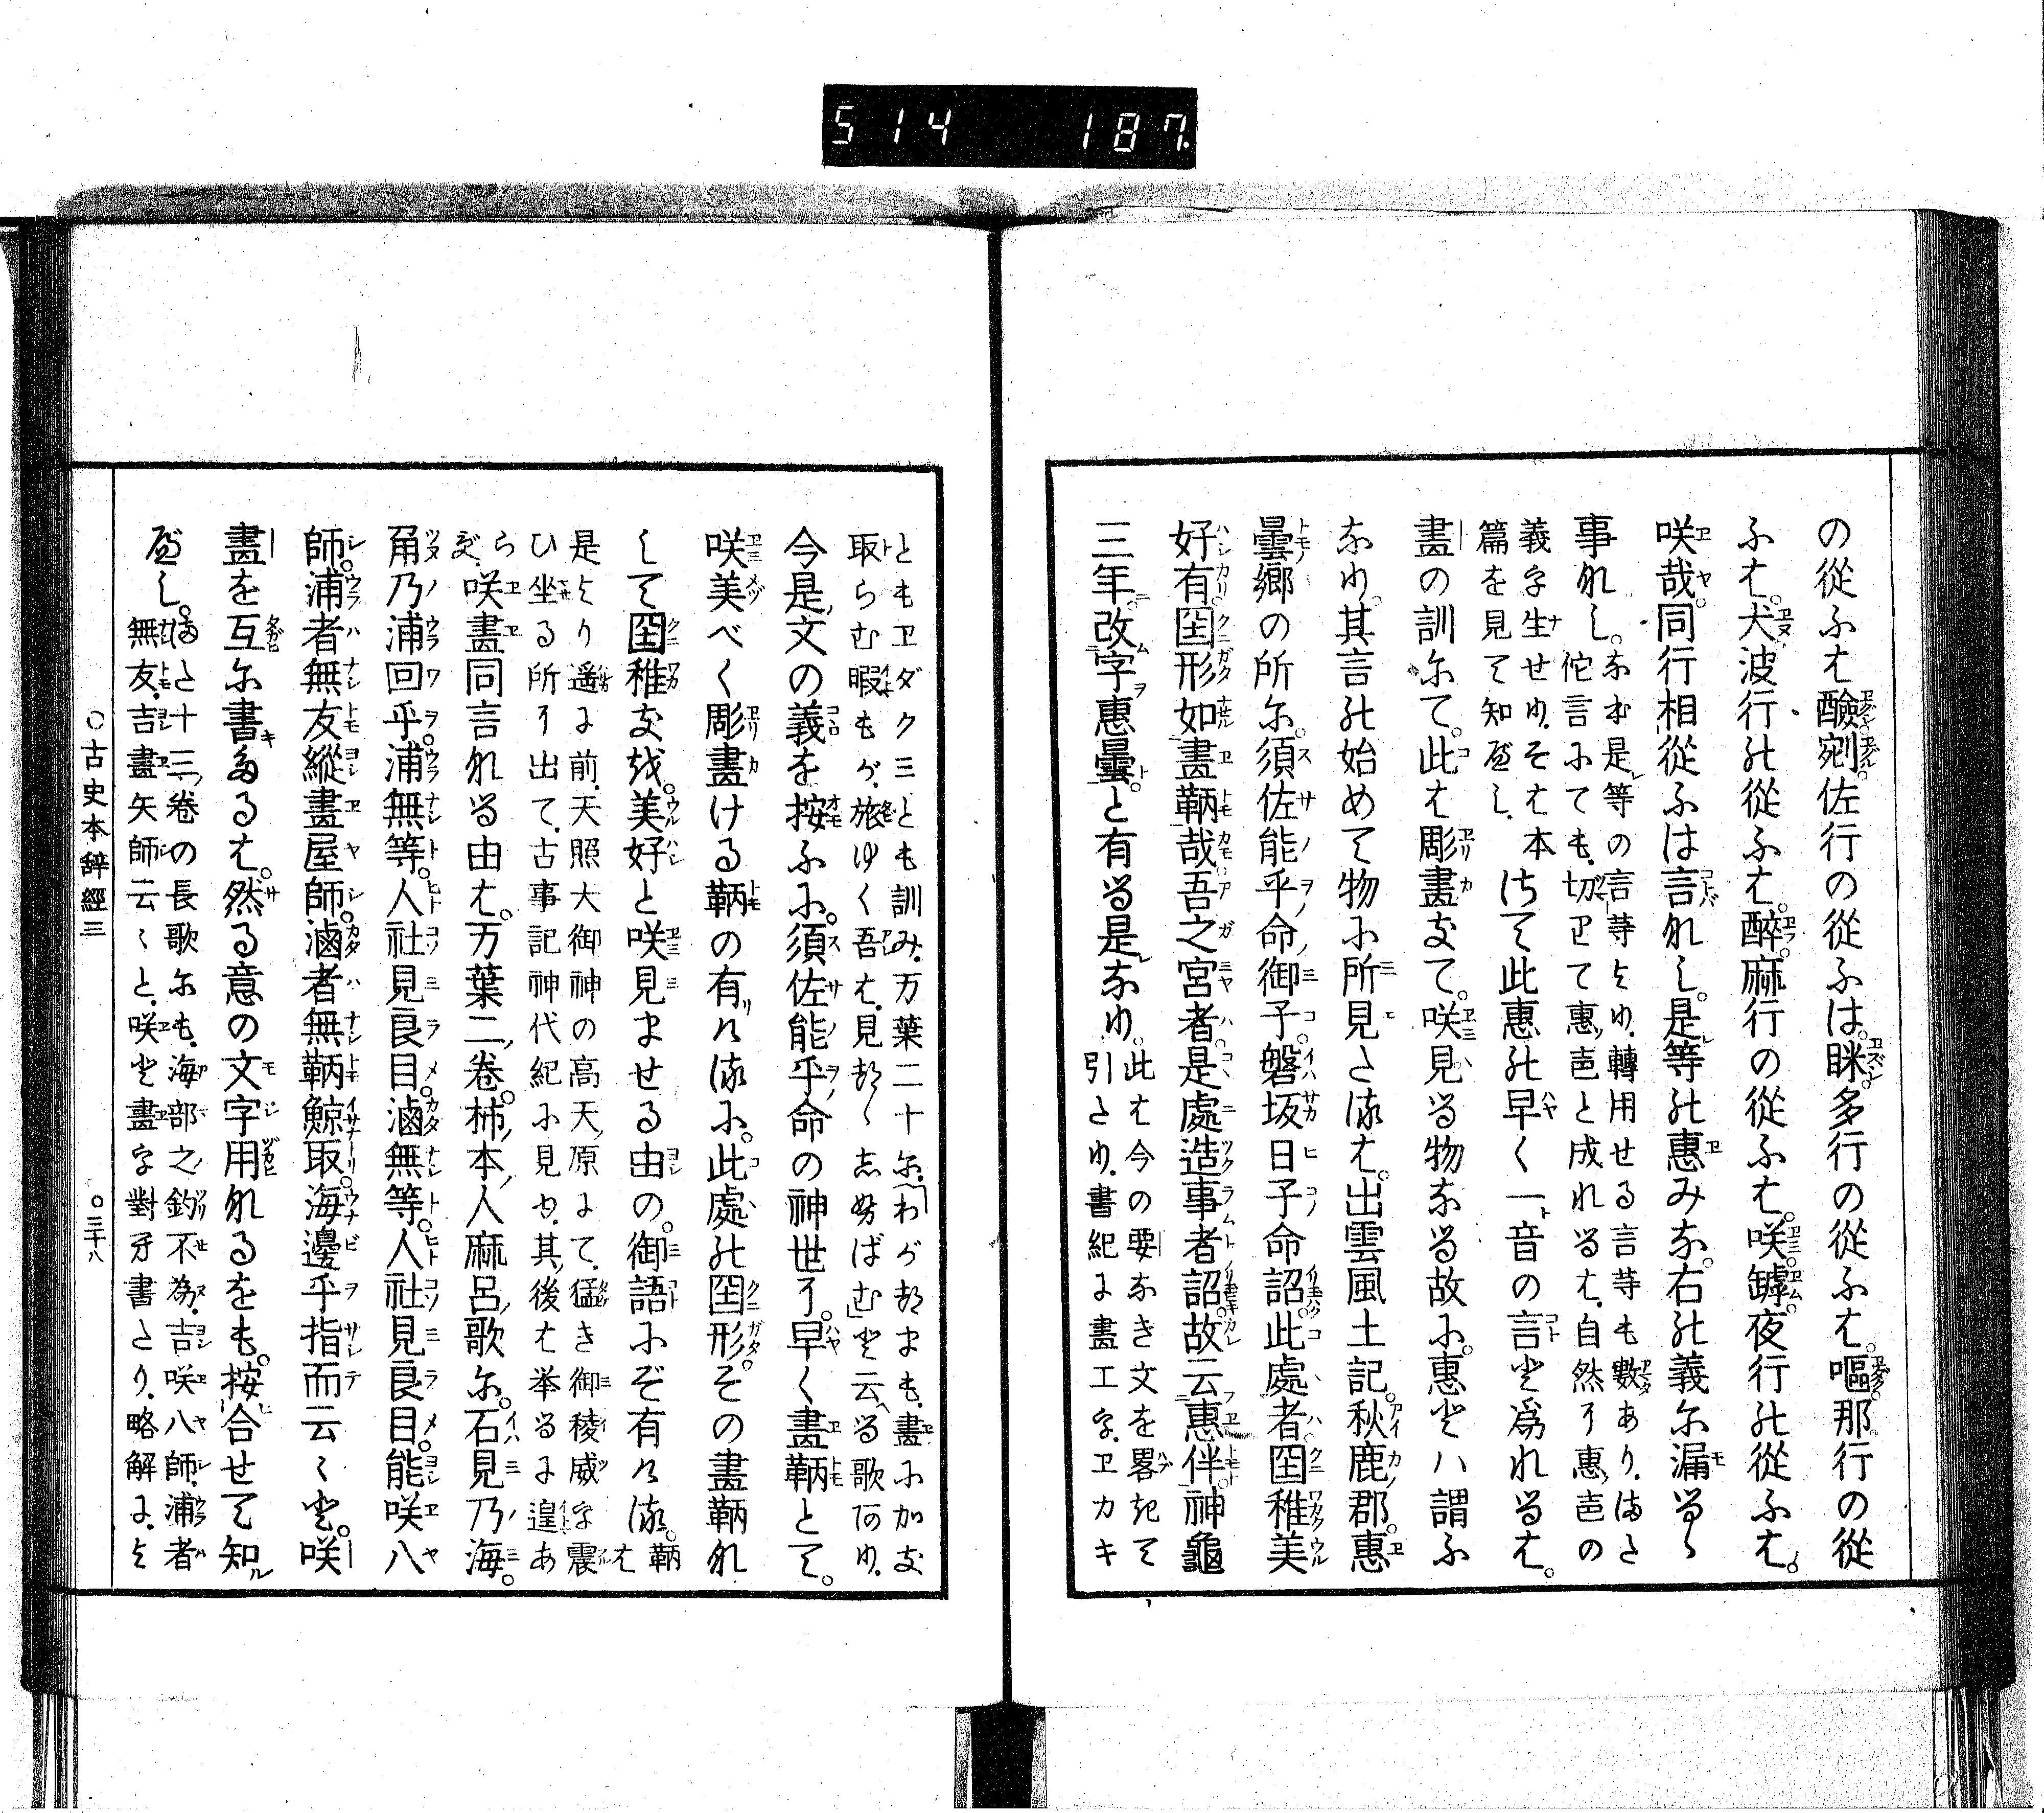 514 187
の從ふは。醶剜。佐行の從ふは。眯。多行の從ふは。嘔。那行の從
ふは。犬。波行の從ふは。醉。麻行の從ふは。咲。罅。夜行の從ふは。
咲哉。同行相從ふは言なし。是等の惠みな。右の義に漏るゝ
事なし。なほ是等の言等より。轉用せる言等も數あり。また
佗言にても。切りて惠と成れるは。自然り惠の
義を生せり。そは本
篇を見て知べし。
さて此惠の早く一音の言と爲れるは。
畫の訓にて。此は彫畫なて。咲見る物なる故に。惠とハ謂ふ
なり。其言の始めて物に所見たるは。出雲風土記。秋鹿郡。惠
曇郷の所に。須佐能乎命御子。磐坂日子命詔。此處者。国稚美
好有。国形如畫鞆哉。吾之宮者。是處造事者詔。故云惠伴。神龜
三年。改字惠曇。と有る是なり。
此は今の要なき文を畧きて
引たり。書紀に畫工を。ヱカキ
ともヱダクミとも訓み。万葉二十に。わが
妻も。畫に加な
取らむ暇もが。旅ゆく吾は。見つゝ
志努ばむと云へる歌あり。
今是文の義を按ふに。須佐能乎命の神世り。早く畫鞆とて。
咲美べく彫畫ける鞆の有ける
に。此處の国形。その畫鞆な
して国稚なれ。美好と咲見ませる由の。御語にぞ有ける。
鞆は
是より遙に前。天照大御神の高天原にて。猛き御稜威を震
ひ坐る所り出て。古事記神代紀に見ゆ。其後は挙るに遑あ
らず。咲畫同言なる由は。万葉二卷。柿本人麻呂歌に。石見乃海。
角乃浦回乎。浦無等。人社見良目。滷無等。人社見良目。能咲八
師。浦者無友。縱畫屋師。滷者無鞆。鯨取。海邊乎指而云々と。咲
畫を互に書たるは。然る意の文字用なるをも。按合せて知
べし。
また十三卷の長歌にも。海部之釣不為。吉咲八師。浦者
無友。吉畫矢師云々と。咲と畫を對才書たり。略解に。よ
○古史本辭經三
○三十八